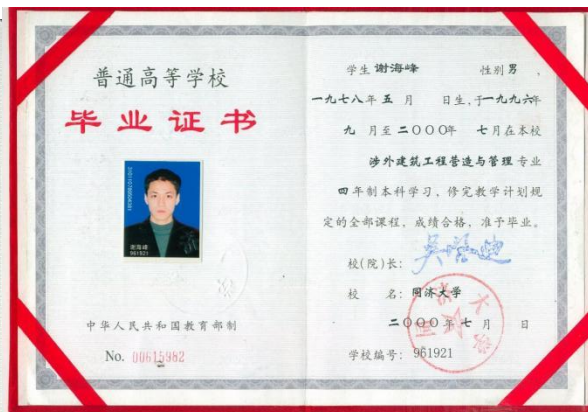 普通高等学校
毕业证书
谢海峰
961921
中华人民共和国教育部制
No. 00615982
学生 谢海峰 性别 男 、
一九七八年 五 月 日生,于一九九六年
九 月至 二〇〇〇年 七 月在本校
涉外建筑工程营造与管理 专业
四 年制本科学习,修完教学计划规
定的全部课程,成绩合格,准予毕业。
校(院)长:
校 名: 同济大学
二〇〇〇 年 七 月 日
学校编号: 961921